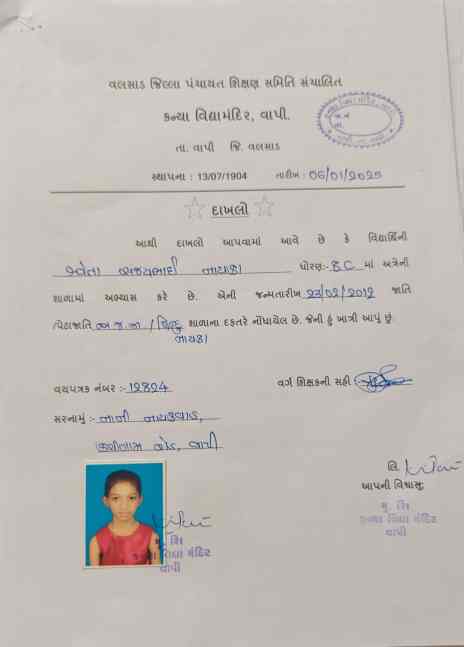 વલસાડ જિલ્લા પંચાયત શિક્ષણ સમિતિ સંચાલિત
કન્યા વિદ્યામંદિર, વાપી.
તા. વાપી જિ. વલસાડ
સ્થાપના : 13/07/1904 તારીખ : 06/01/2025
દાખલો
આથી દાખલો આપવામાં આવે છે કે વિદ્યાર્થિની
શ્વેતા અજયભાઈ નાયકા ધોરણ:- 8C માં અત્રેની
શાળામાં અભ્યાસ કરે છે. એની જન્મતારીખ 23/02/2012 જાતિ
/પેટાજાતિ અ.જ.જા / હિન્દુ શાળાના દફતરે નોંધાયેલ છે. જેની હું ખાત્રી આપું છું.
નાયકા
વયપત્રક નંબર :- 12824 વર્ગ શિક્ષકની સહી :-
સરનામું :- નાની નાયકવાડ,
રોડ, વાપી
લિ.
આપની વિશ્વાસુ:
મુ. શિ
કન્યા વિદ્યા મંદિર
વાપી
મુ. શિ
કન્યા વિદ્યા મંદિર
વાપી